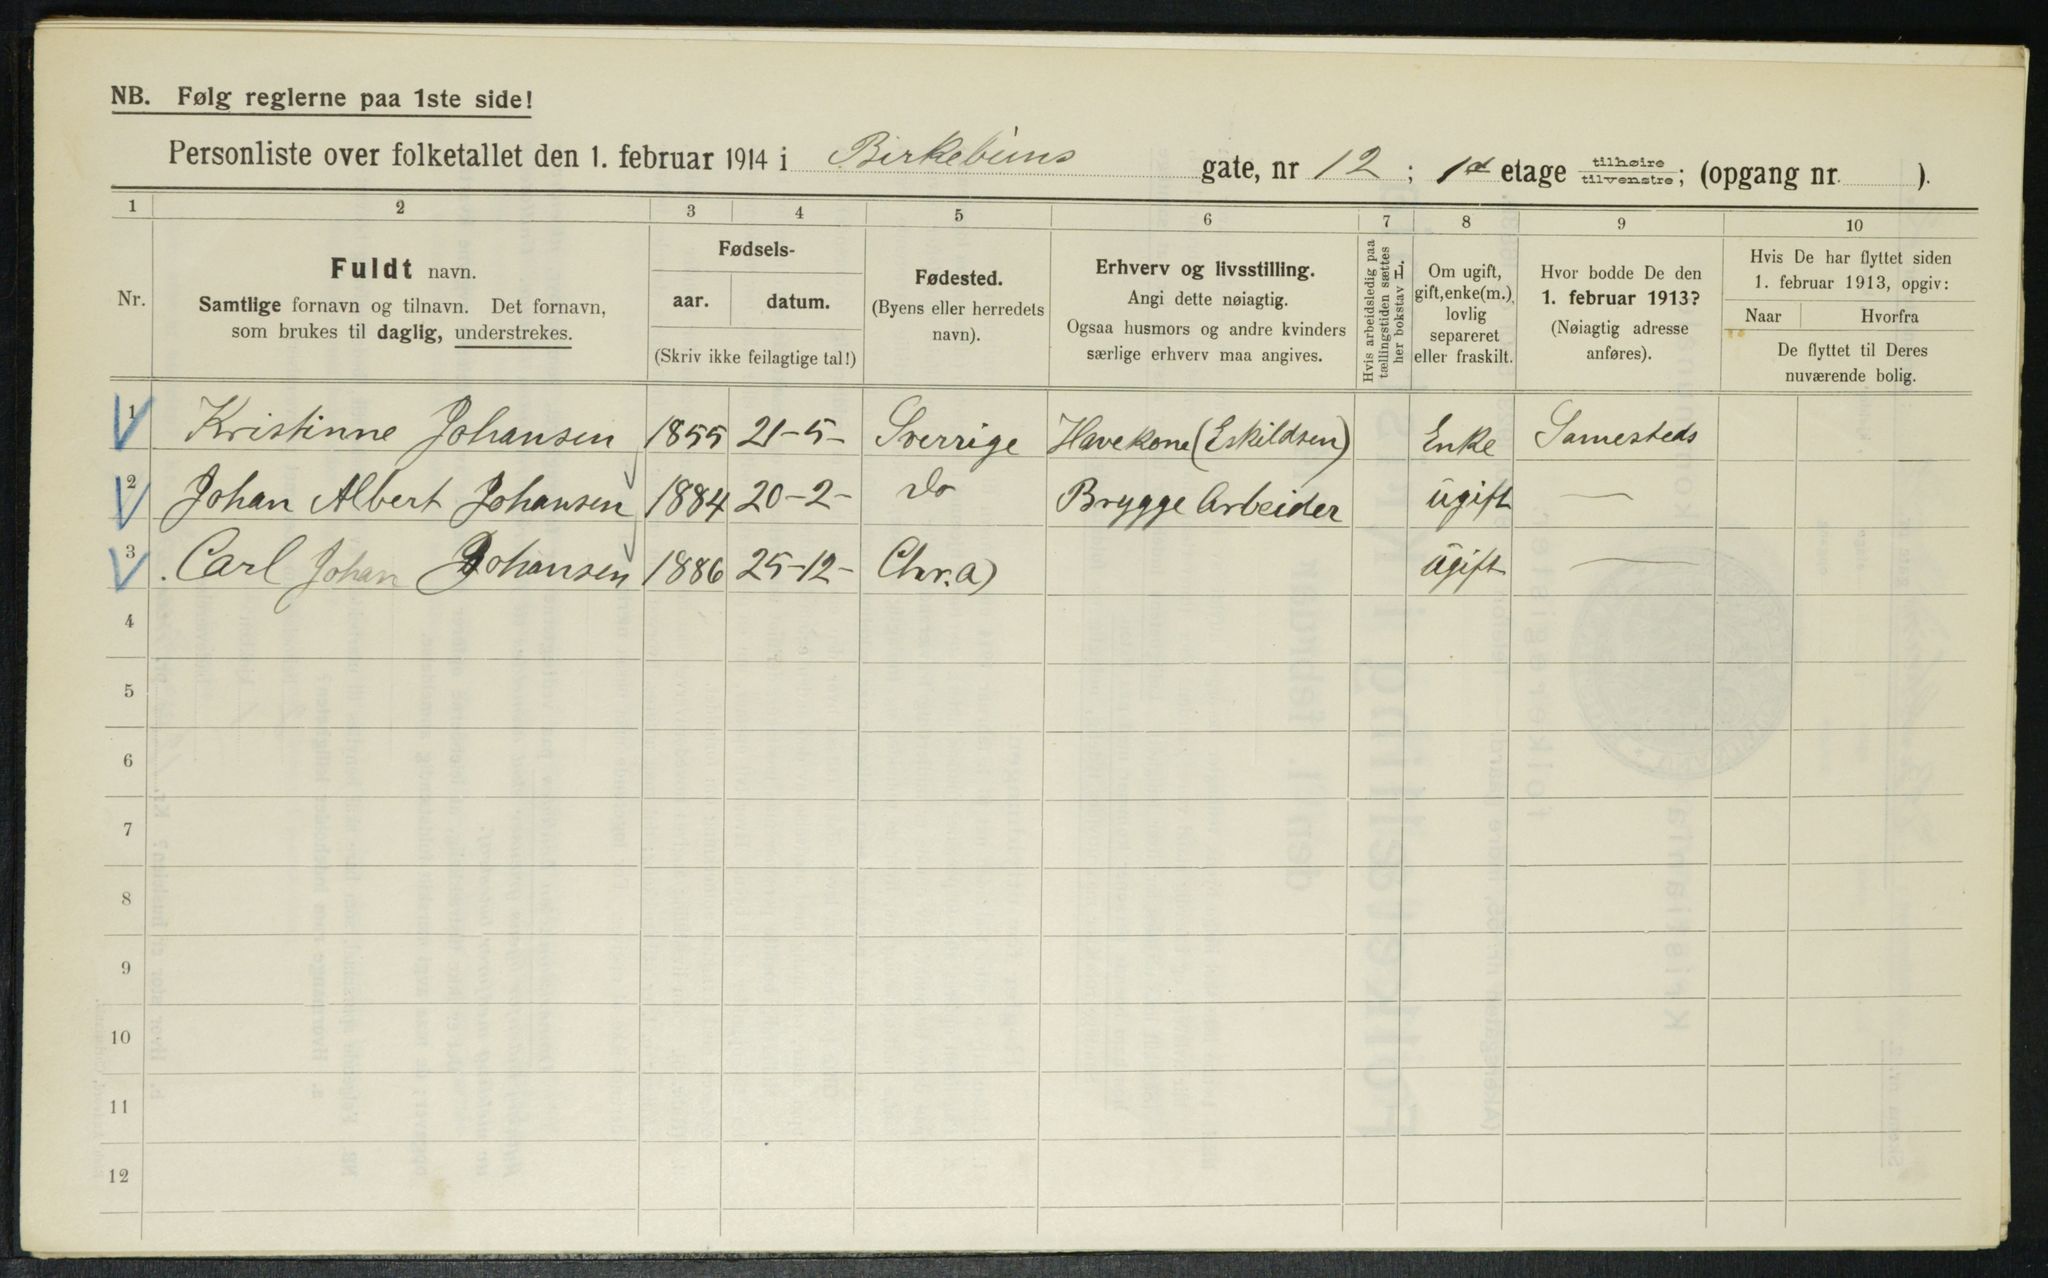 NB. Følg reglerne paa 1ste side!
Personliste over folketallet den 1. februar 1914 i Birkebeins gate, nr 12; 1st etage tilhøire tilvenstre; (opgang nr. ).
1 2 3 4 5 6 7 8 9 10
Nr.
Fuldt navn.
Samtlige fornavn og tilnavn. Det fornavn,
som brukes til daglig, understrekes.
Fødsels-
aar. datum.
(Skriv ikke feilagtige tal!)
Fødested.
(Byens eller herredets
navn).
Erhverv og livsstilling.
Angi dette nøiagtig.
Ogsaa husmors og andre kvinders
særlige erhverv maa angives.
Hvis arbeidsledig paa
tællingstiden sættes
her bokstav L.
Om ugift,
gift, enke(m.),
lovlig
separeret
eller fraskilt.
Hvor bodde De den
1. februar 1913?
(Nøiagtig adresse
anføres).
Hvis De har flyttet siden
1. februar 1913, opgiv:
Naar Hvorfra
De flyttet til Deres
nuværende bolig.
1 Kristinne Johansen 1855 21-5- Sverrige Havekone (Eskildsen) Enke Samesteds
2 Johan Albert Johansen 1884 20-2- do Brygge Arbeider ugift —
3 Carl Johan Johansen 1886 25-12- Chr.a) ugift —
4
5
6
7
8
9
10
11
12